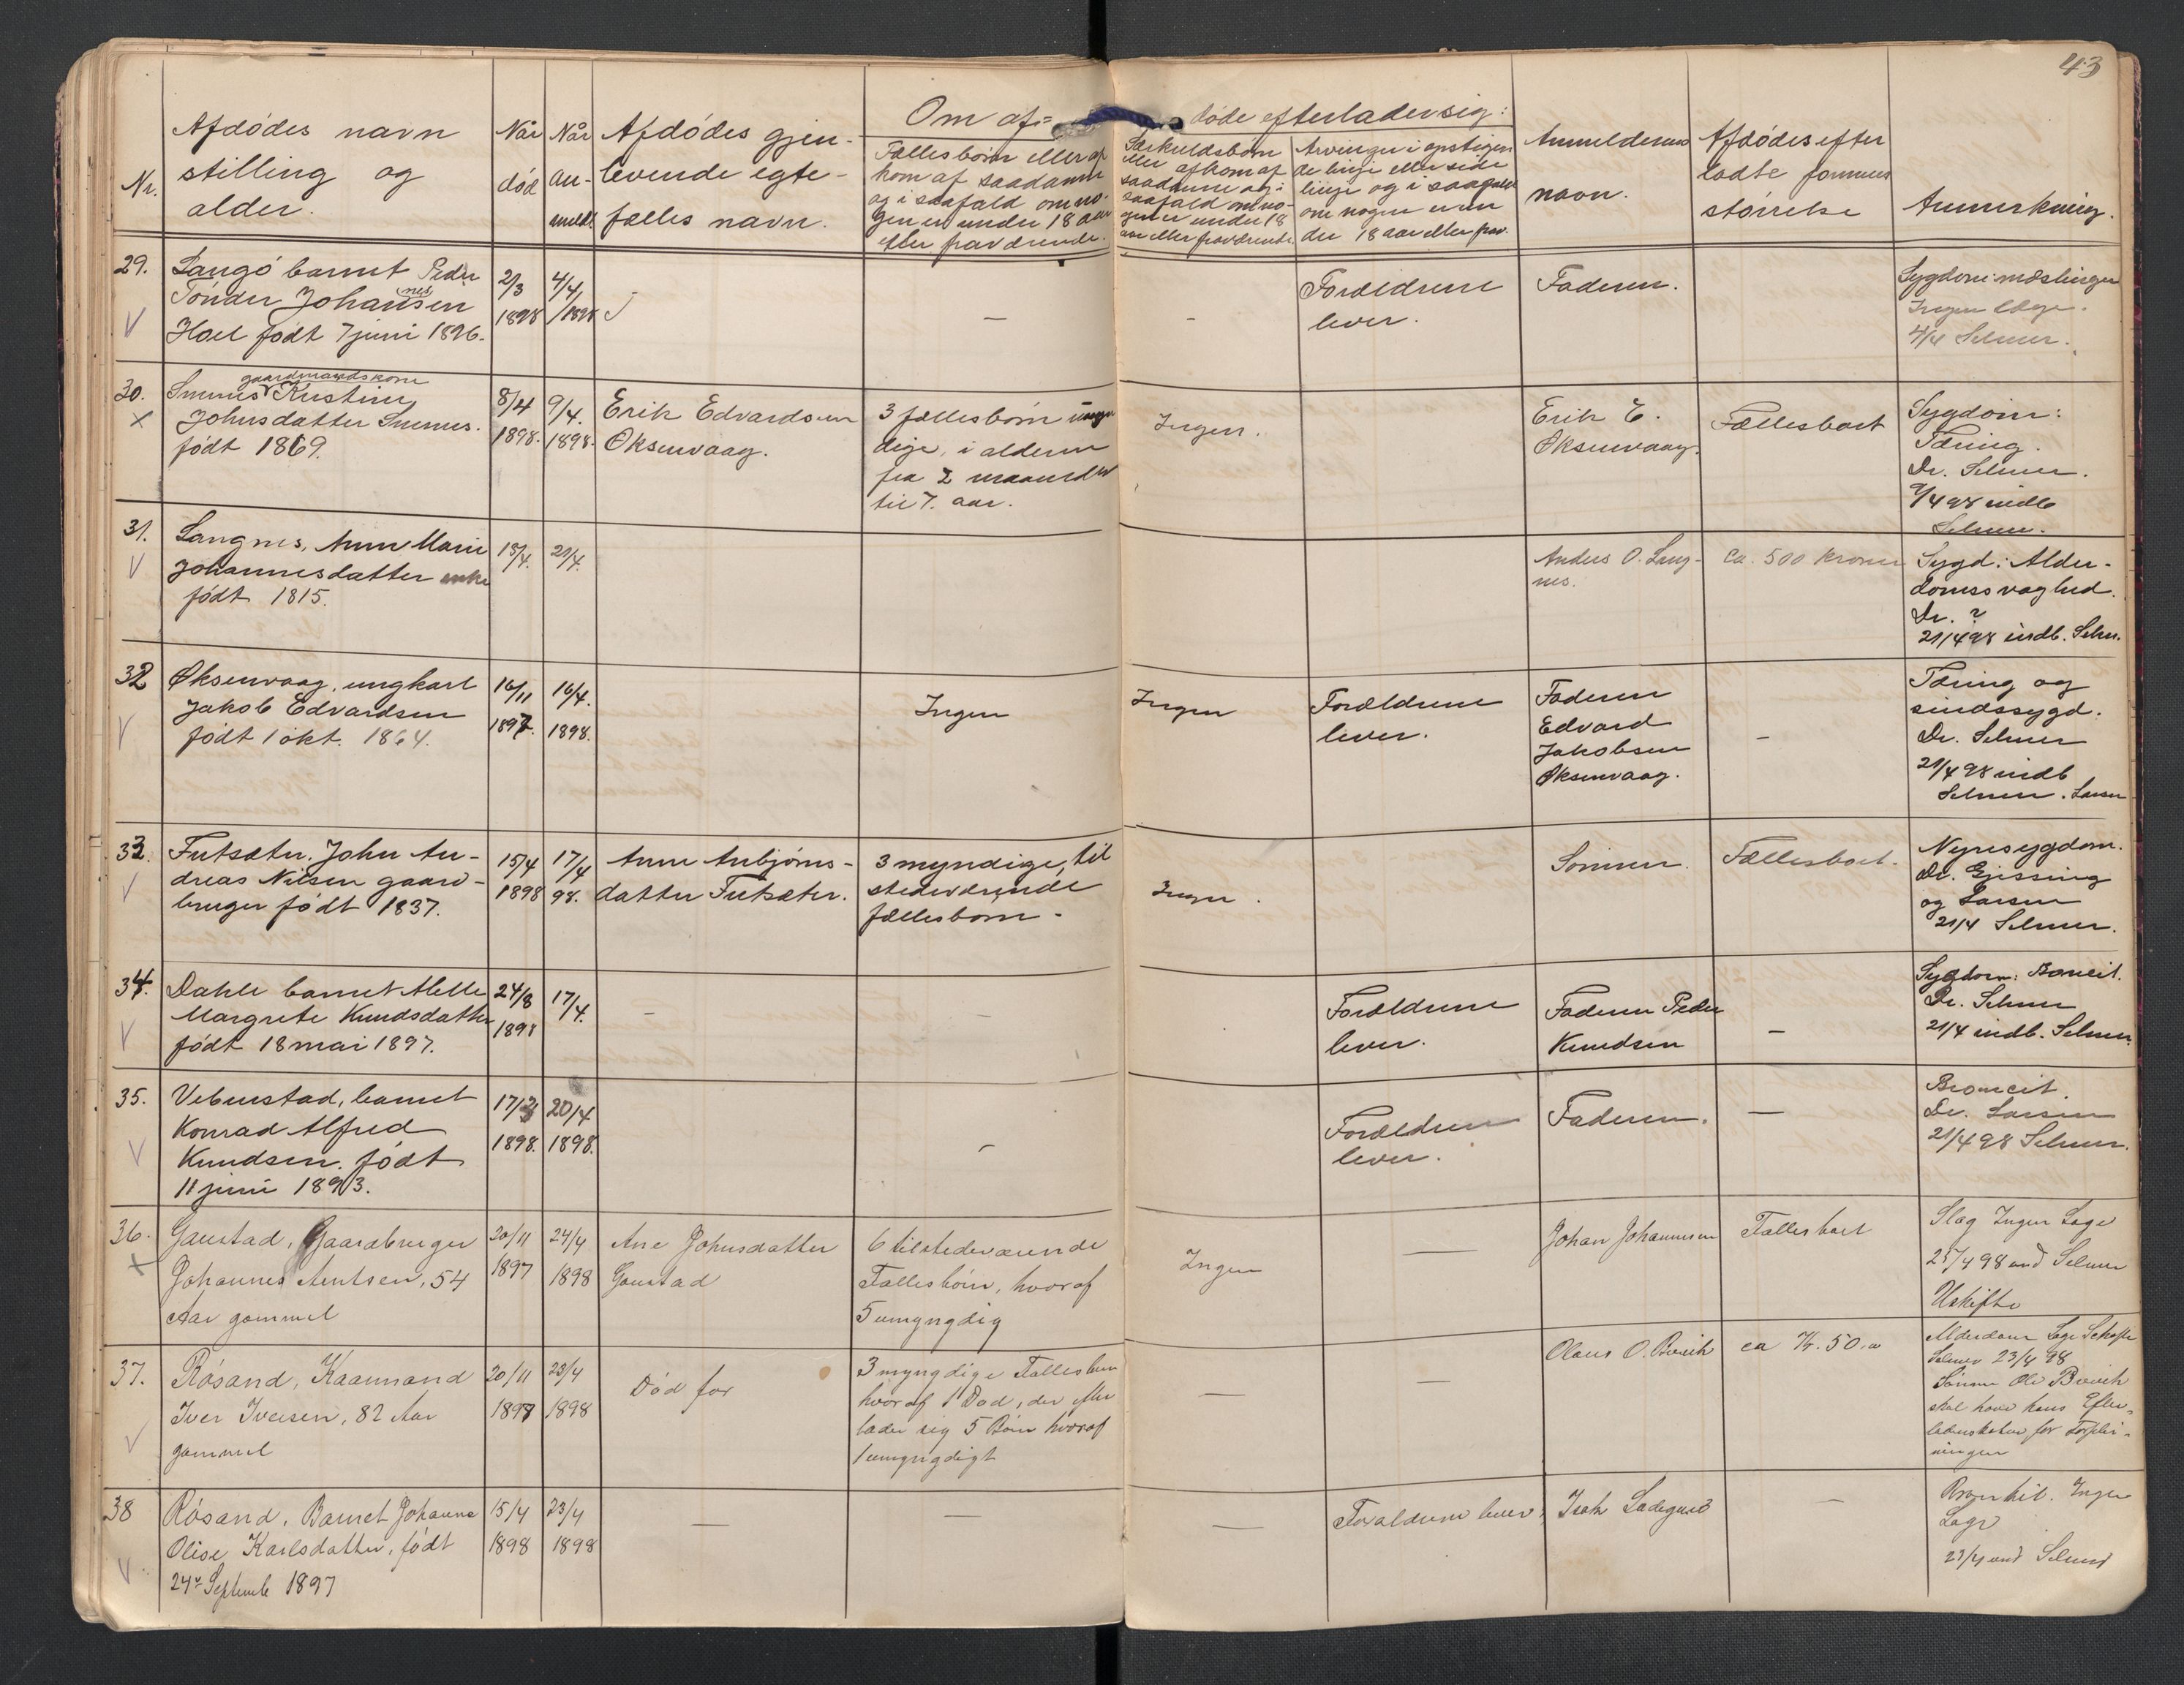 43
Nr.
Afdödes navn
stilling og
alder.
Når
död
Når
an-
meldt
Afdödes gjen-
levende egte-
fælles navn.
Om af=
döde efterlader sig:
Fællesbörn eller af
kom af saadanne
og i saafald om no-
gen er under 18 aar
eller fraværende.
Særkuldsbörn
eller afkom af
saadanne og i
saafald om no-
gen er under 18
aar eller fraværende.
Arvinger i opstigen
de linje eller side
linje og i saafald
om nogen er un
der 18 aar eller frav.
Anmelderens
navn.
Afdödes efter
ladte formues
störrelse
Anmerkning.
29.
Langö barnet Peder
Tönder Johansen
Hoel födt 7 juni 1896.
2/3
1898
4/4
1898
-
-
Forældrene
lever.
Faderen.
Sygdom: mæslinger
Ingen læge.
4/4 Selmer.
30.
gaardmandskone
Smenes Kristine
Johnsdatter Smenes.
födt 1869.
8/4
1898.
9/4.
1898.
Erik Edvardsen
Öksenvaag.
3 fællesbörn umyn
dige, i alderen
fra 2 maaneder
til 7. aar.
Ingen.
Erik E.
Öksenvaag.
Fællesboet
Sygdom:
Tæring.
Dr. Selmer.
9/4 98 indb
Selmer.
31.
Langnes, Anne Marie
Johannesdatter enke
födt 1815.
13/4.
21/4.
Anders O. Lang-
nes.
ca. 500 kroner
Sygd: Alder-
domssvaghed.
Dr. ?
21/4 98 indb. Selm.
32
Öksenvaag, ungkarl
Jakob Edvardsen
födt 1 okt. 1864.
16/11
1897.
16/4.
1898.
Ingen
Ingen
Forældrene
lever.
Faderen
Edvard
Jakobsen
Öksenvaag.
-
Tæring og
sindssygd.
Dr. Selmer
21/4 98 indb
Selmer. Larsen
33.
Futsæter. John An-
dreas Nilsen gaard-
bruger födt 1837.
15/4
1898
17/4
98.
Anne Anbjörns-
datter Futsæter.
3 myndige, til
stedeværende
fællesbörn -
Ingen.
Sönnen.
Fællesboet.
Nyresygdom.
Dr. Gjessing
og Larsen
21/4 Selmer.
34.
Dahle barnet Mette
Margrete Knudsdatter
födt 18 mai 1897.
24/8
1898
17/4.
-
-
Forældrene
lever.
Faderen Peder
Knudsen
-
Sygdom: Broncit.
Dr. Selmer
21/4 indb. Selmer.
35.
Vebenstad, barnet
Konrad Alfred
Knudsen. födt
11 juni 1893.
17/3
1898.
20/4
1898.
-
Forældrene
lever.
Faderen.
-
Broncit.
Dr. Larsen
21/4 98 Selmer.
36.
Gaustad, Gaardbruger
Johannes Arntsen, 54
Aar gammel
20/11
1897
24/4
1898
Ane Johnsdatter
Gaustad
6 tilstedeværende
Fællesbörn, hvoraf
5 umyngdig
Ingen
-
Johan Johannesen
Fællesboet
Slag Ingen Læge
25/4 98 ind Selmer
Uskifte
37.
Rösand, Kaarmand
Iver Iversen, 82 Aar
gammel
20/11
1897
23/4
1898
Död för
3 myngdige Fællesbörn
hvoraf 1 Död, der efter
lader sig 5 Börn hvoraf
1 umyngdigt
-
-
Olaus O. Brevik
ca Kr. 50.
Alderdom Læge
Selmer 23/4 98
Sönnen Ole Brevik
skal have hans Efter-
ladenskaber for Forplei-
ningen
38
Rösand, Barnet Johanna
Olise Karlsdatter, födt
24de September 1897
15/4
1898
23/4
1898
-
-
-
Forældrene lever
Isak Ladegaard
-
Bronkit. Ingen
Læge
23/4 ind Selmer